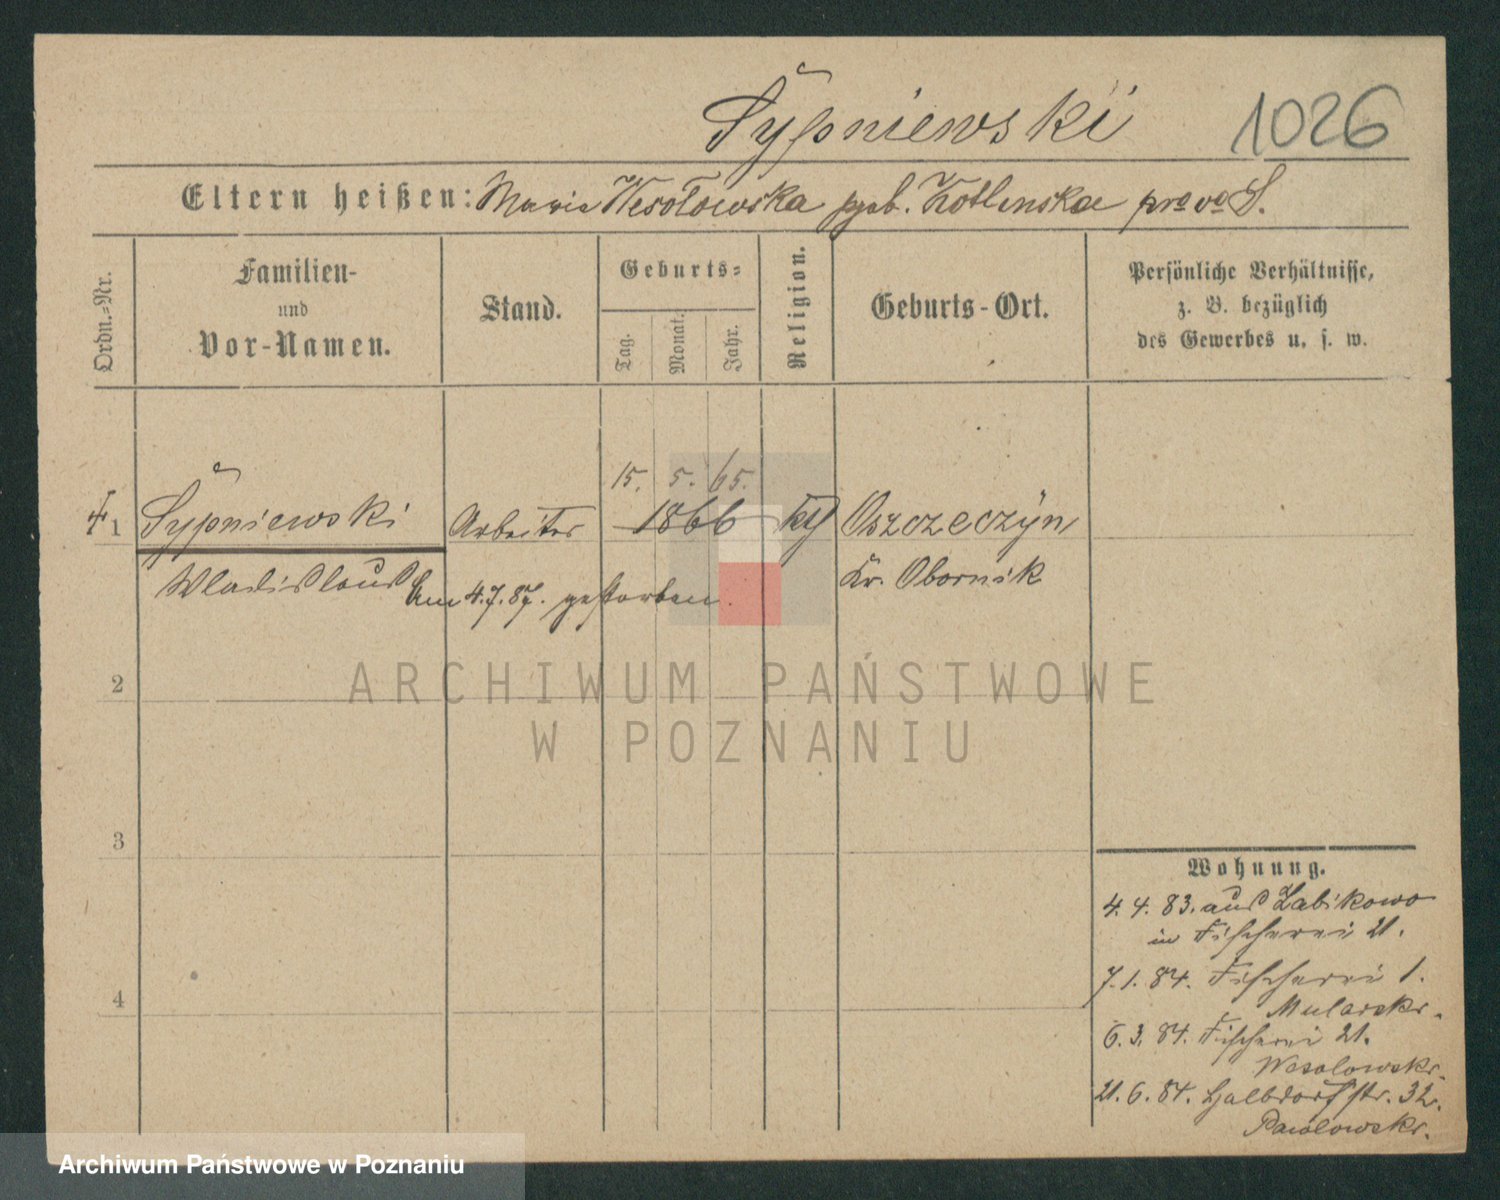 Sypniewski 1026
Eltern heißen: Maria Wesołowska geb. Kotlinska prvo S.
Ordn.-Nr.
Familien-
und
Vor-Namen.
Stand.
Geburts-
Tag.
Monat.
Jahr.
Religion.
Geburts-Ort.
Persönliche Verhältnisse,
z. B. bezüglich
des Gewerbes u. s. w.
15. 5. 65.
1 Sypniewski Arbeiter 1866 Oszczeczyn
Wladislaus Kr. Obornik
Am 4.7.87. gestorben.
2
3
4
Wohnung.
4. 4. 83. aus Zabikowo
in Fischerei 21.
7. 1. 84. Fischerei 1.
Mularski.
6. 3. 84. Fischerei 21.
Wesolowski.
21. 6. 84. Halbdorfstr. 32.
Pawlowski.
ARCHIWUM PAŃSTWOWE
W POZNANIU
Archiwum Państwowe w Poznaniu